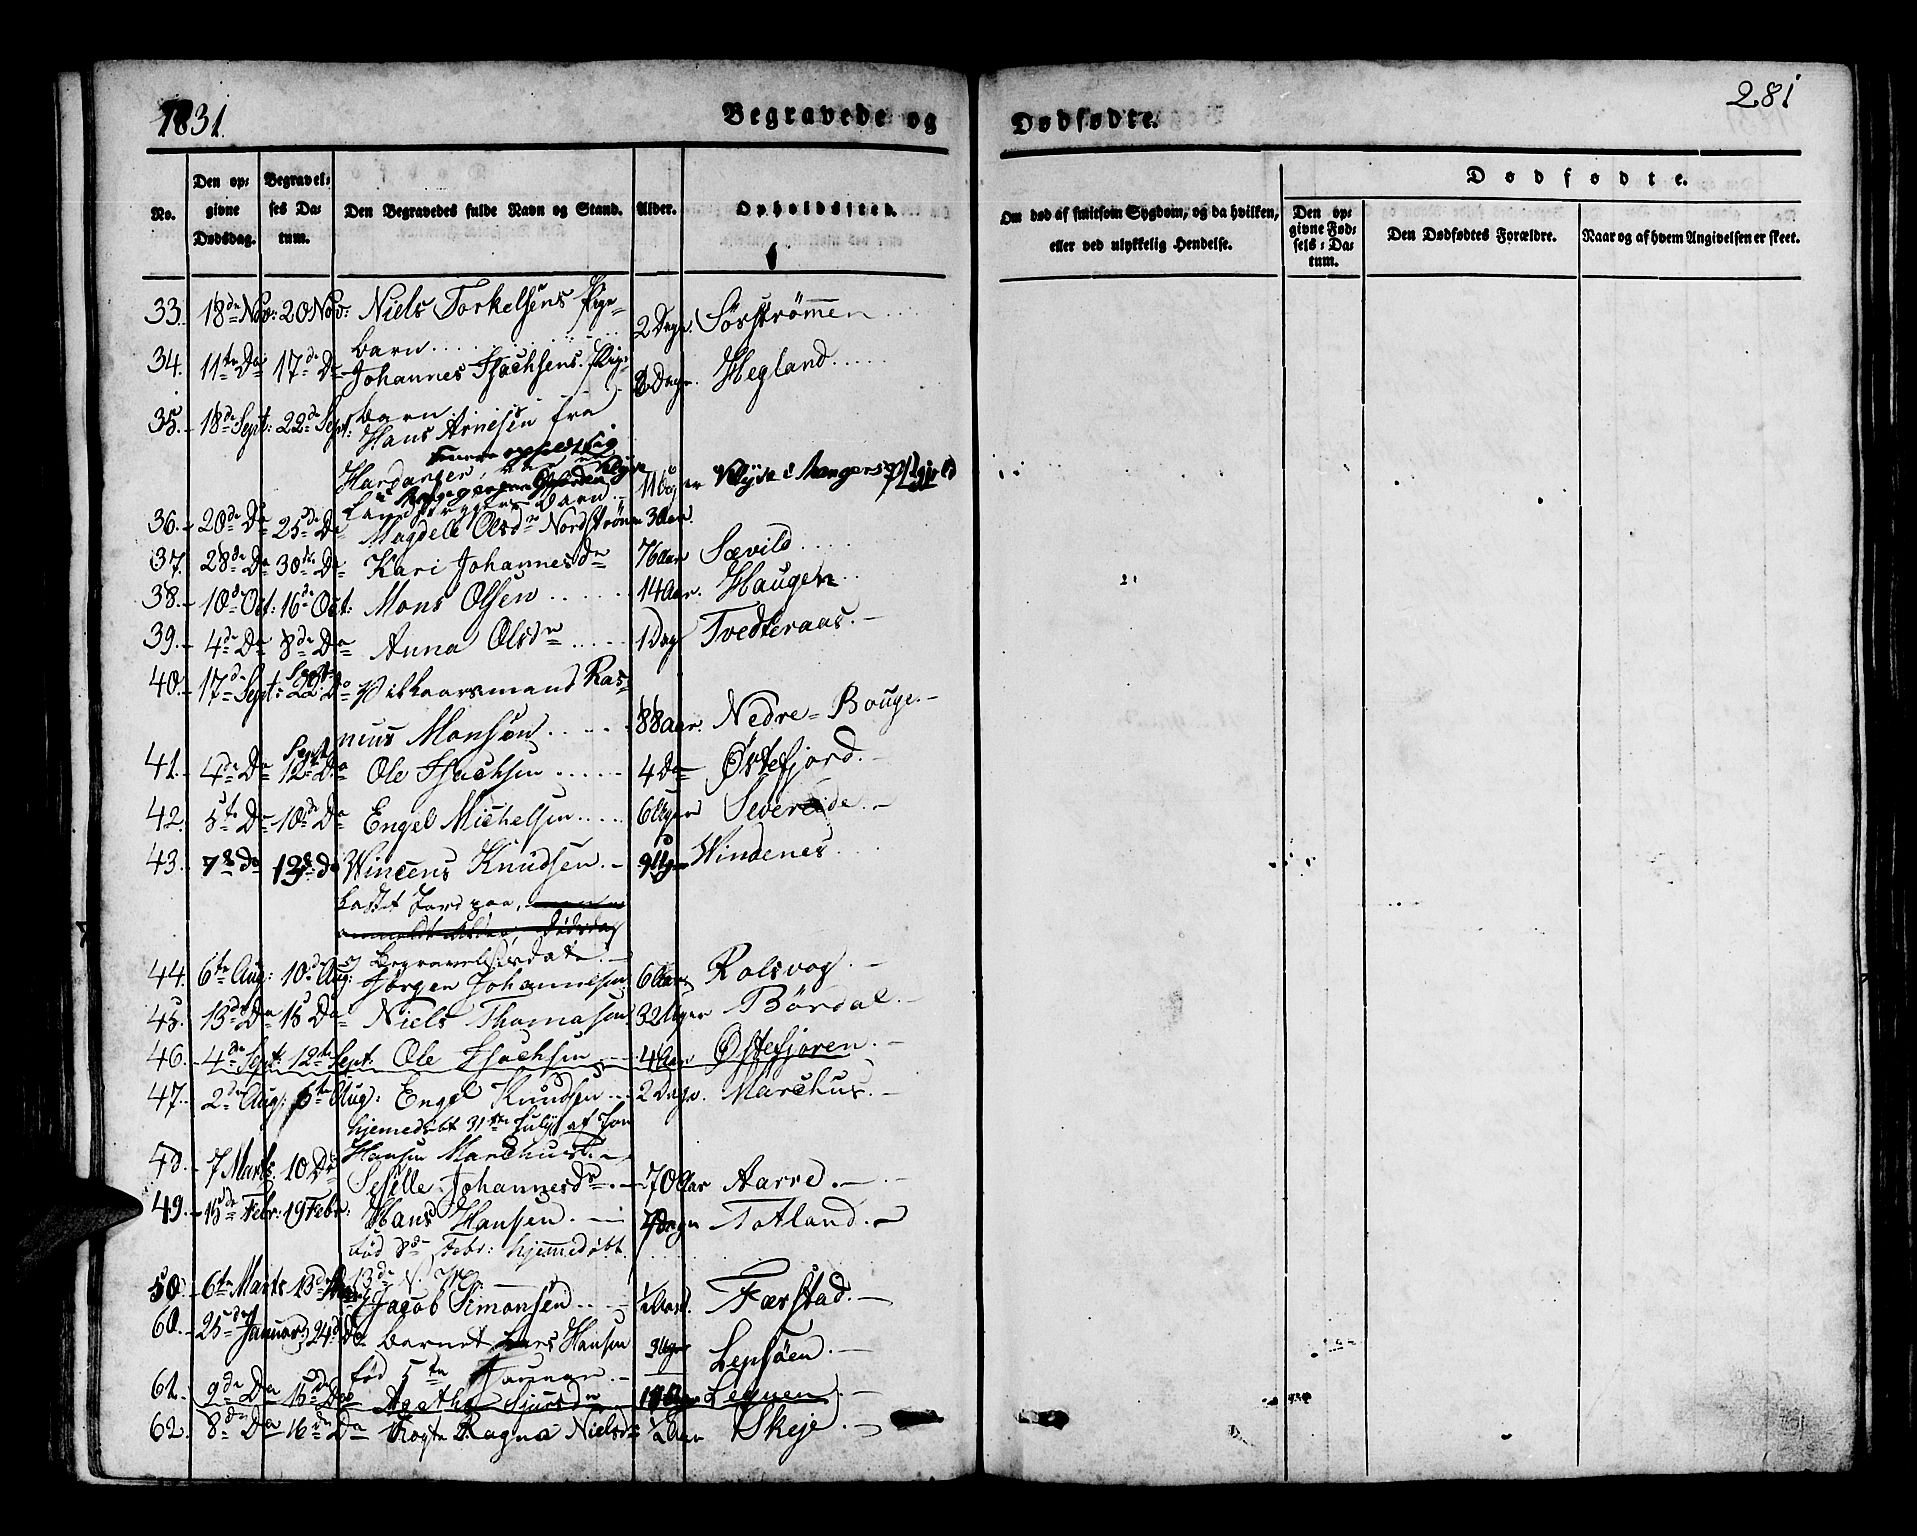 1831
Begravede og Dødfødte.
281
No.
Den opgivne Dødsdag.
Begravelses Datum.
Den Begravedes fulde Navn og Stand.
Alder.
Opholdssted.
Om død af smitsom Sygdom, og da hvilken, eller ved ulykkelig Hendelse.
Dødfødte.
Den opgivne Fødsels-Datum.
Den Dødfødtes Forældre.
Naar og af hvem Angivelsen er skeet.
33. 18de Nov: 20 Nov: Niels Torkelsens Pige- 2 Dage. Söxströmen
barn
34. 11te Do 17de Do Johannes Isachsens Pige- Dage. Hegland
barn
35. 18de Sept: 22de Sept: Hans Arnesen fra
Hardanger
barn
36. 20de Do 25de Do Magdele Olsdr Nordströmen 3 Aar.
37. 28de Do 30te Do Kari Johannesdr 76 Aar Sævild
38. 10de Oct: 16de Oct: Mons Olsen 14 Aar. Haugen
39. 4de Do 8de Do Anna Olsdr 1 Dag Tvedteraas.
40. 17de Sept: 22de Do Sept Vilkaarsmand Ras-
mus Monsen 88 Aar. Nedre-Bouge.
41. 4de Do 12te Do Sept Ole Isachsen 4 Do Østefjord.
42. 5te Do 10de Do Engel Michelsen 6 Uger Severeide.
43. 7de Do 13de Do Wincens Knudsen. 9 Uger Windenes
kastet Jord paa,
Begravelsesdato.
44. 6te Aug: 10de Aug: Jørgen Johannesen 6 Aar Rolsvog.
45. 13de Do 15 Do Niels Thomasen 32 Uger Bördal.
46. 4de Sept: 12te Sept: Ole Isachsen 4 Aar Østefjoren.
47. 2den Aug: 6te Aug: Engel Knudsen 2 Dage. Marchus.
hjemedøbt 31te July af Jon
Hansen Marchust.
48. 7 Marts 10 Do Sesselle Johannesdr. 70 Aar Aarre.
49. 15de Febr: 19 Febr: Hans Hansen. 7 Dage Totland.
fød 8de Febr: hjemedøbt
13de
50. 6te Marts 13de Marts Jacob Simonsen 1/2 Aar. Færstad.
60. 25de Januar 24de Do barnet Lars Hansen 3 Uger Lepsöen.
fød 5te Januar.
61. 9de Do 16de Do Agathe Siursdr Legnen.
62. 8de Do 16de Do Ragna Nielsdr 1/2 Aar Skeje.